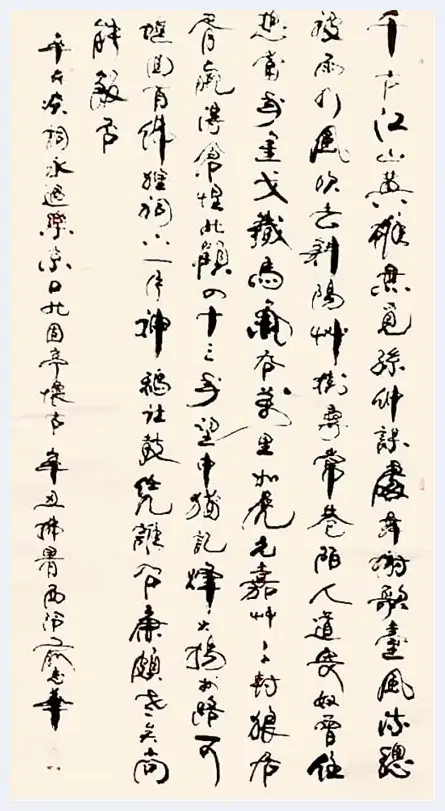 千古江山英雄無覓孫仲謀處舞榭歌臺風流總
被雨打風吹去斜陽艸樹尋常巷陌人道寄奴曾住
想當年金戈鐵馬氣吞萬里如虎元嘉艸艸封狼居
胥贏得倉惶北顧四十三年望中猶記烽火揚州路可
堪回首佛狸祠下一片神鴉社鼓憑誰問廉頗老矣尚
能飯否
辛棄疾詞永遇樂京口北固亭懷古 辛丑